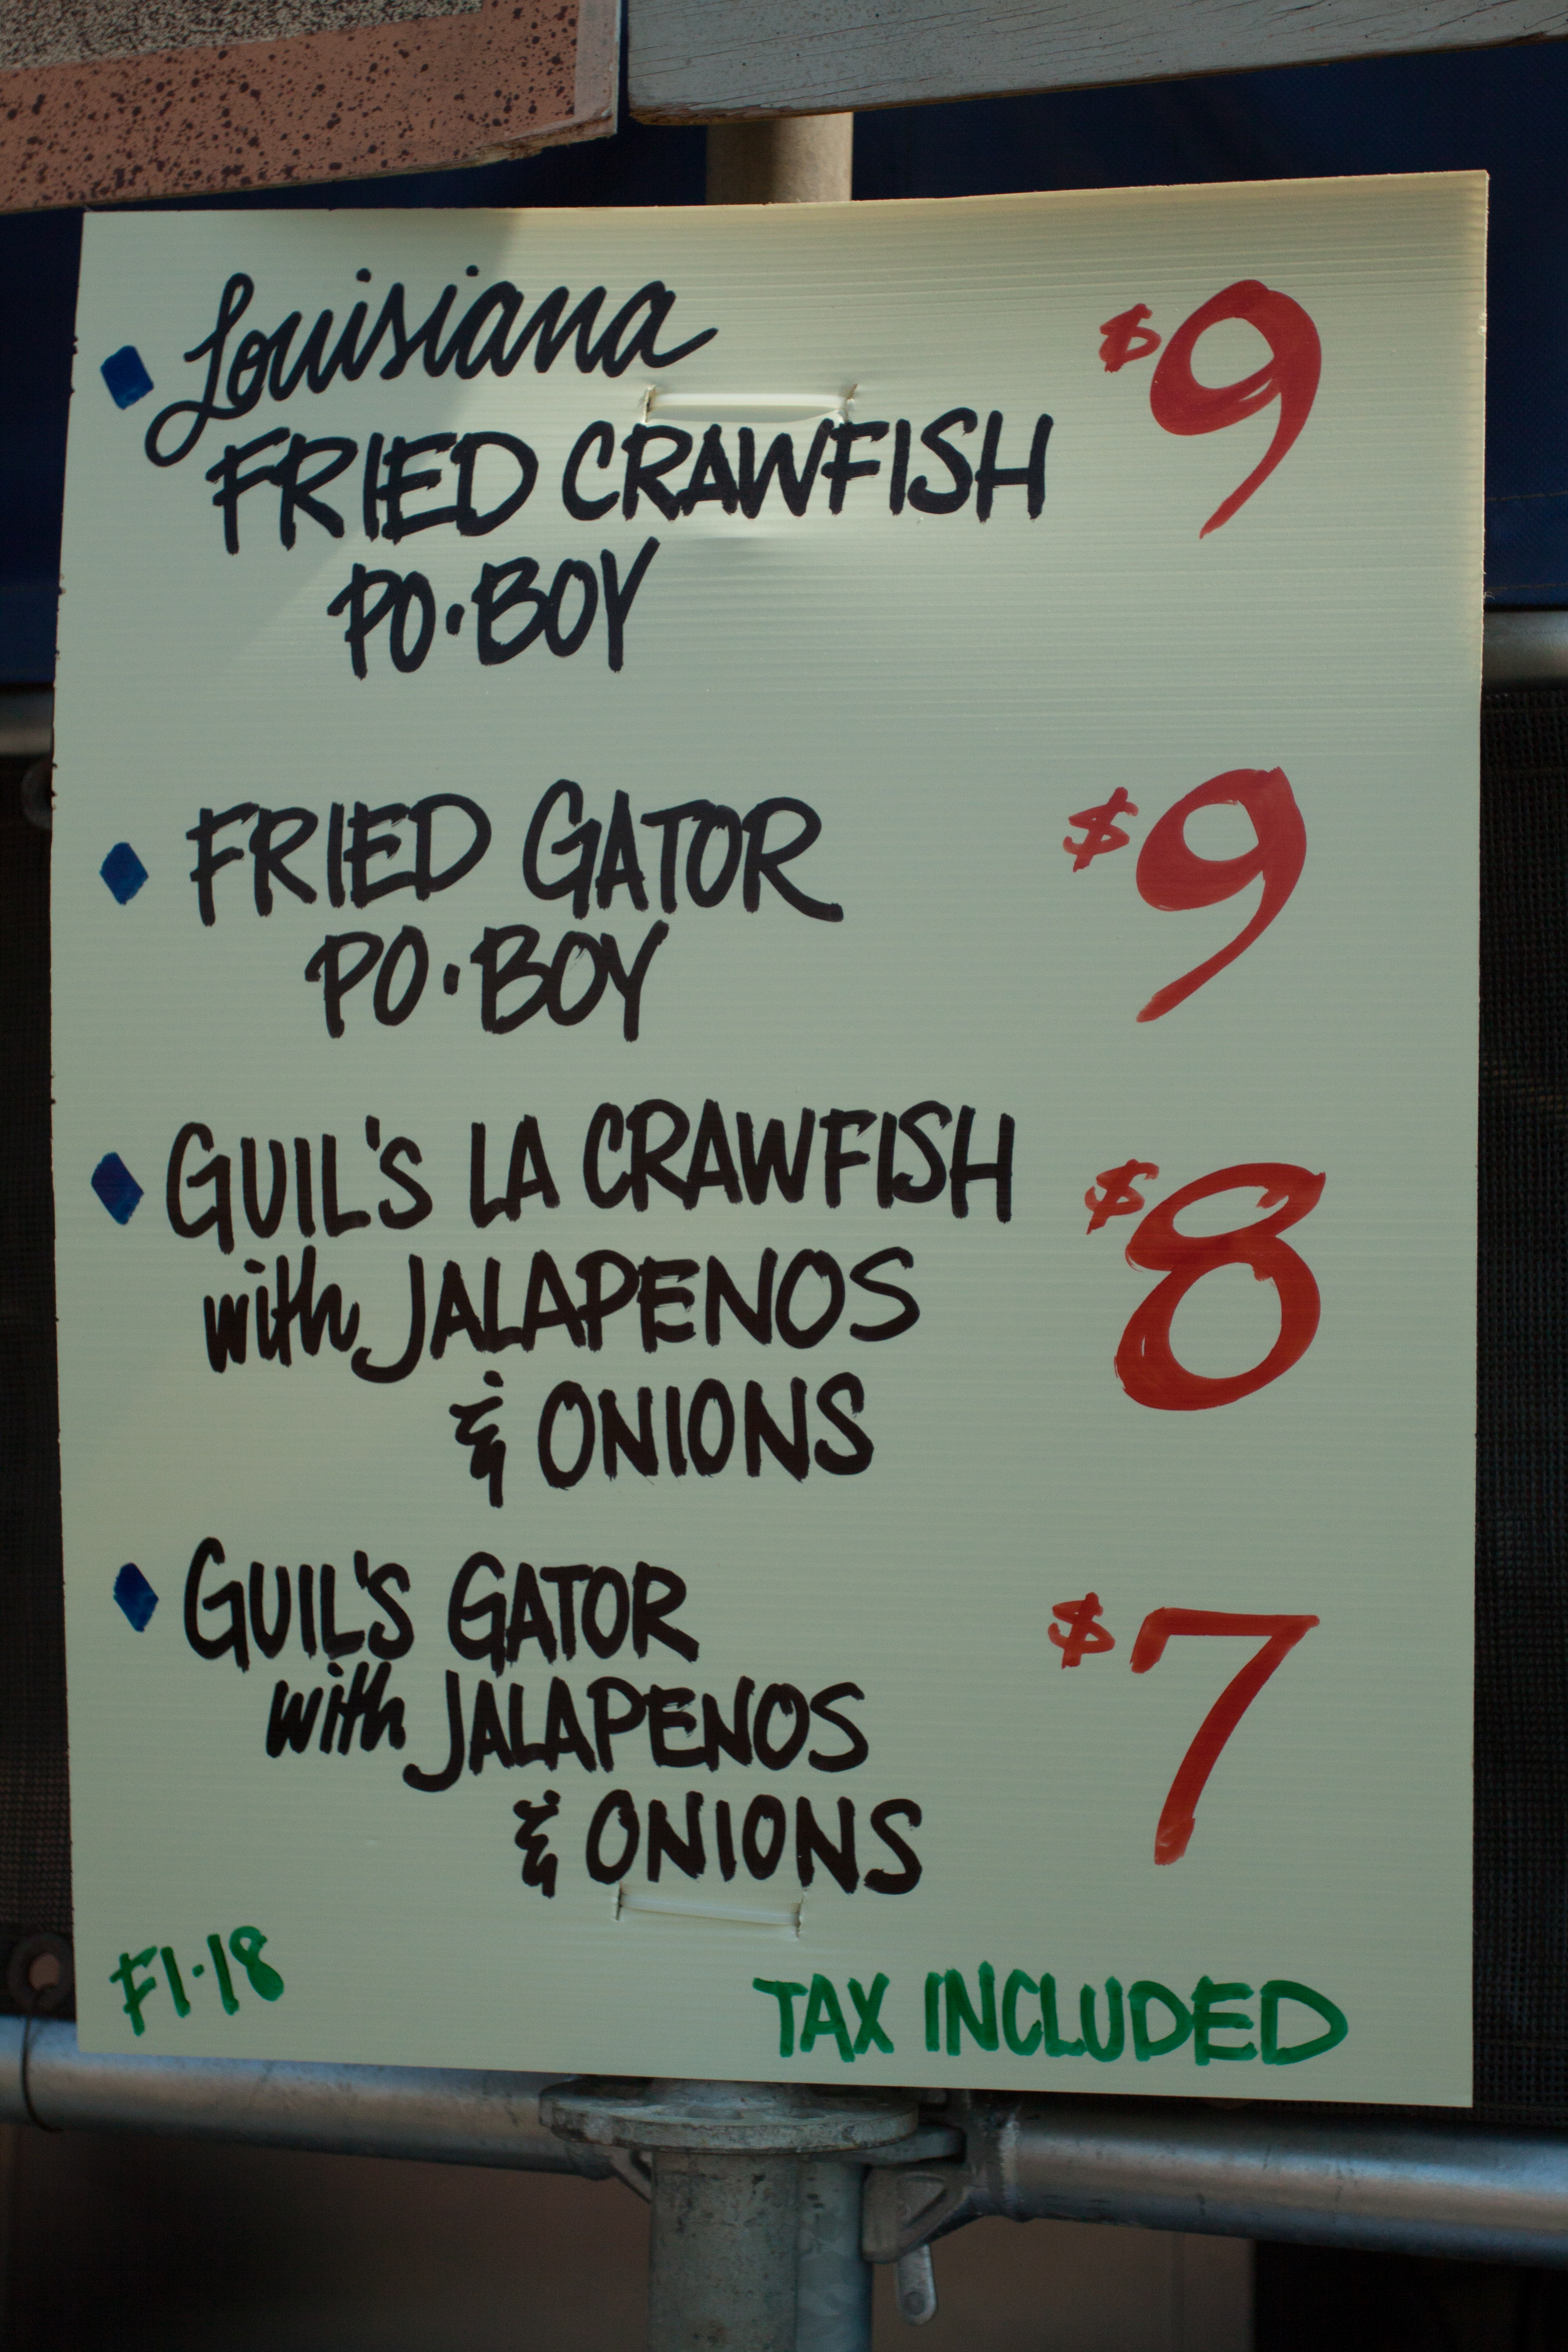 Louisiana $9
FRIED CRAWFISH
PO·BOY
FRIED GATOR $9
PO·BOY
GUIL'S LA CRAWFISH $8
with JALAPENOS
& ONIONS
GUIL'S GATOR $7
with JALAPENOS
& ONIONS
F1·18 TAX INCLUDED